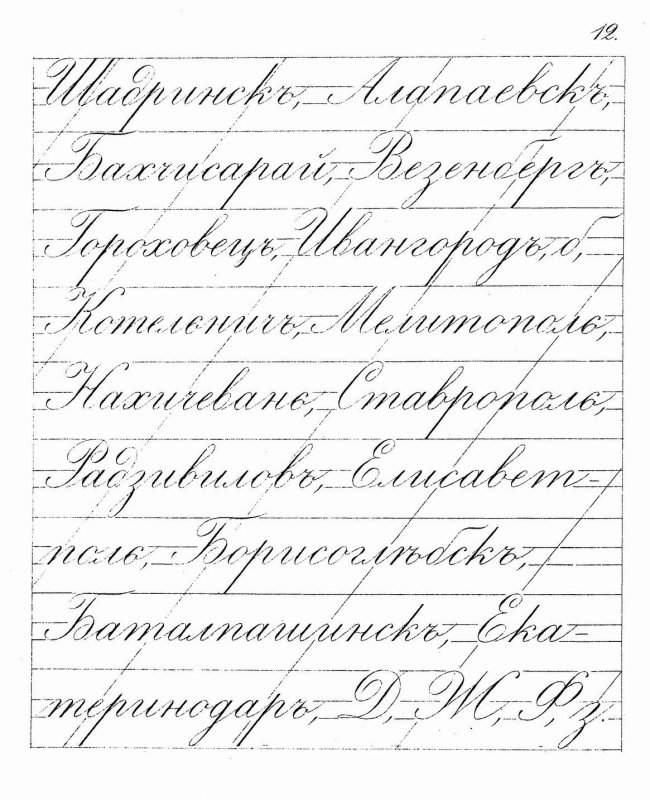 12.
Шадринскъ, Алапаевскъ,
Бахчисарай, Везенбергъ,
Гороховецъ, Ивангородъ, б,
Котельничъ, Мелитополь,
Нахичевань, Ставрополь,
Радзивиловъ, Елисавет-
поль, Борисоглѣбскъ,
Баталпашинскъ, Ека-
теринодаръ, Д, Ж, Ф, з.